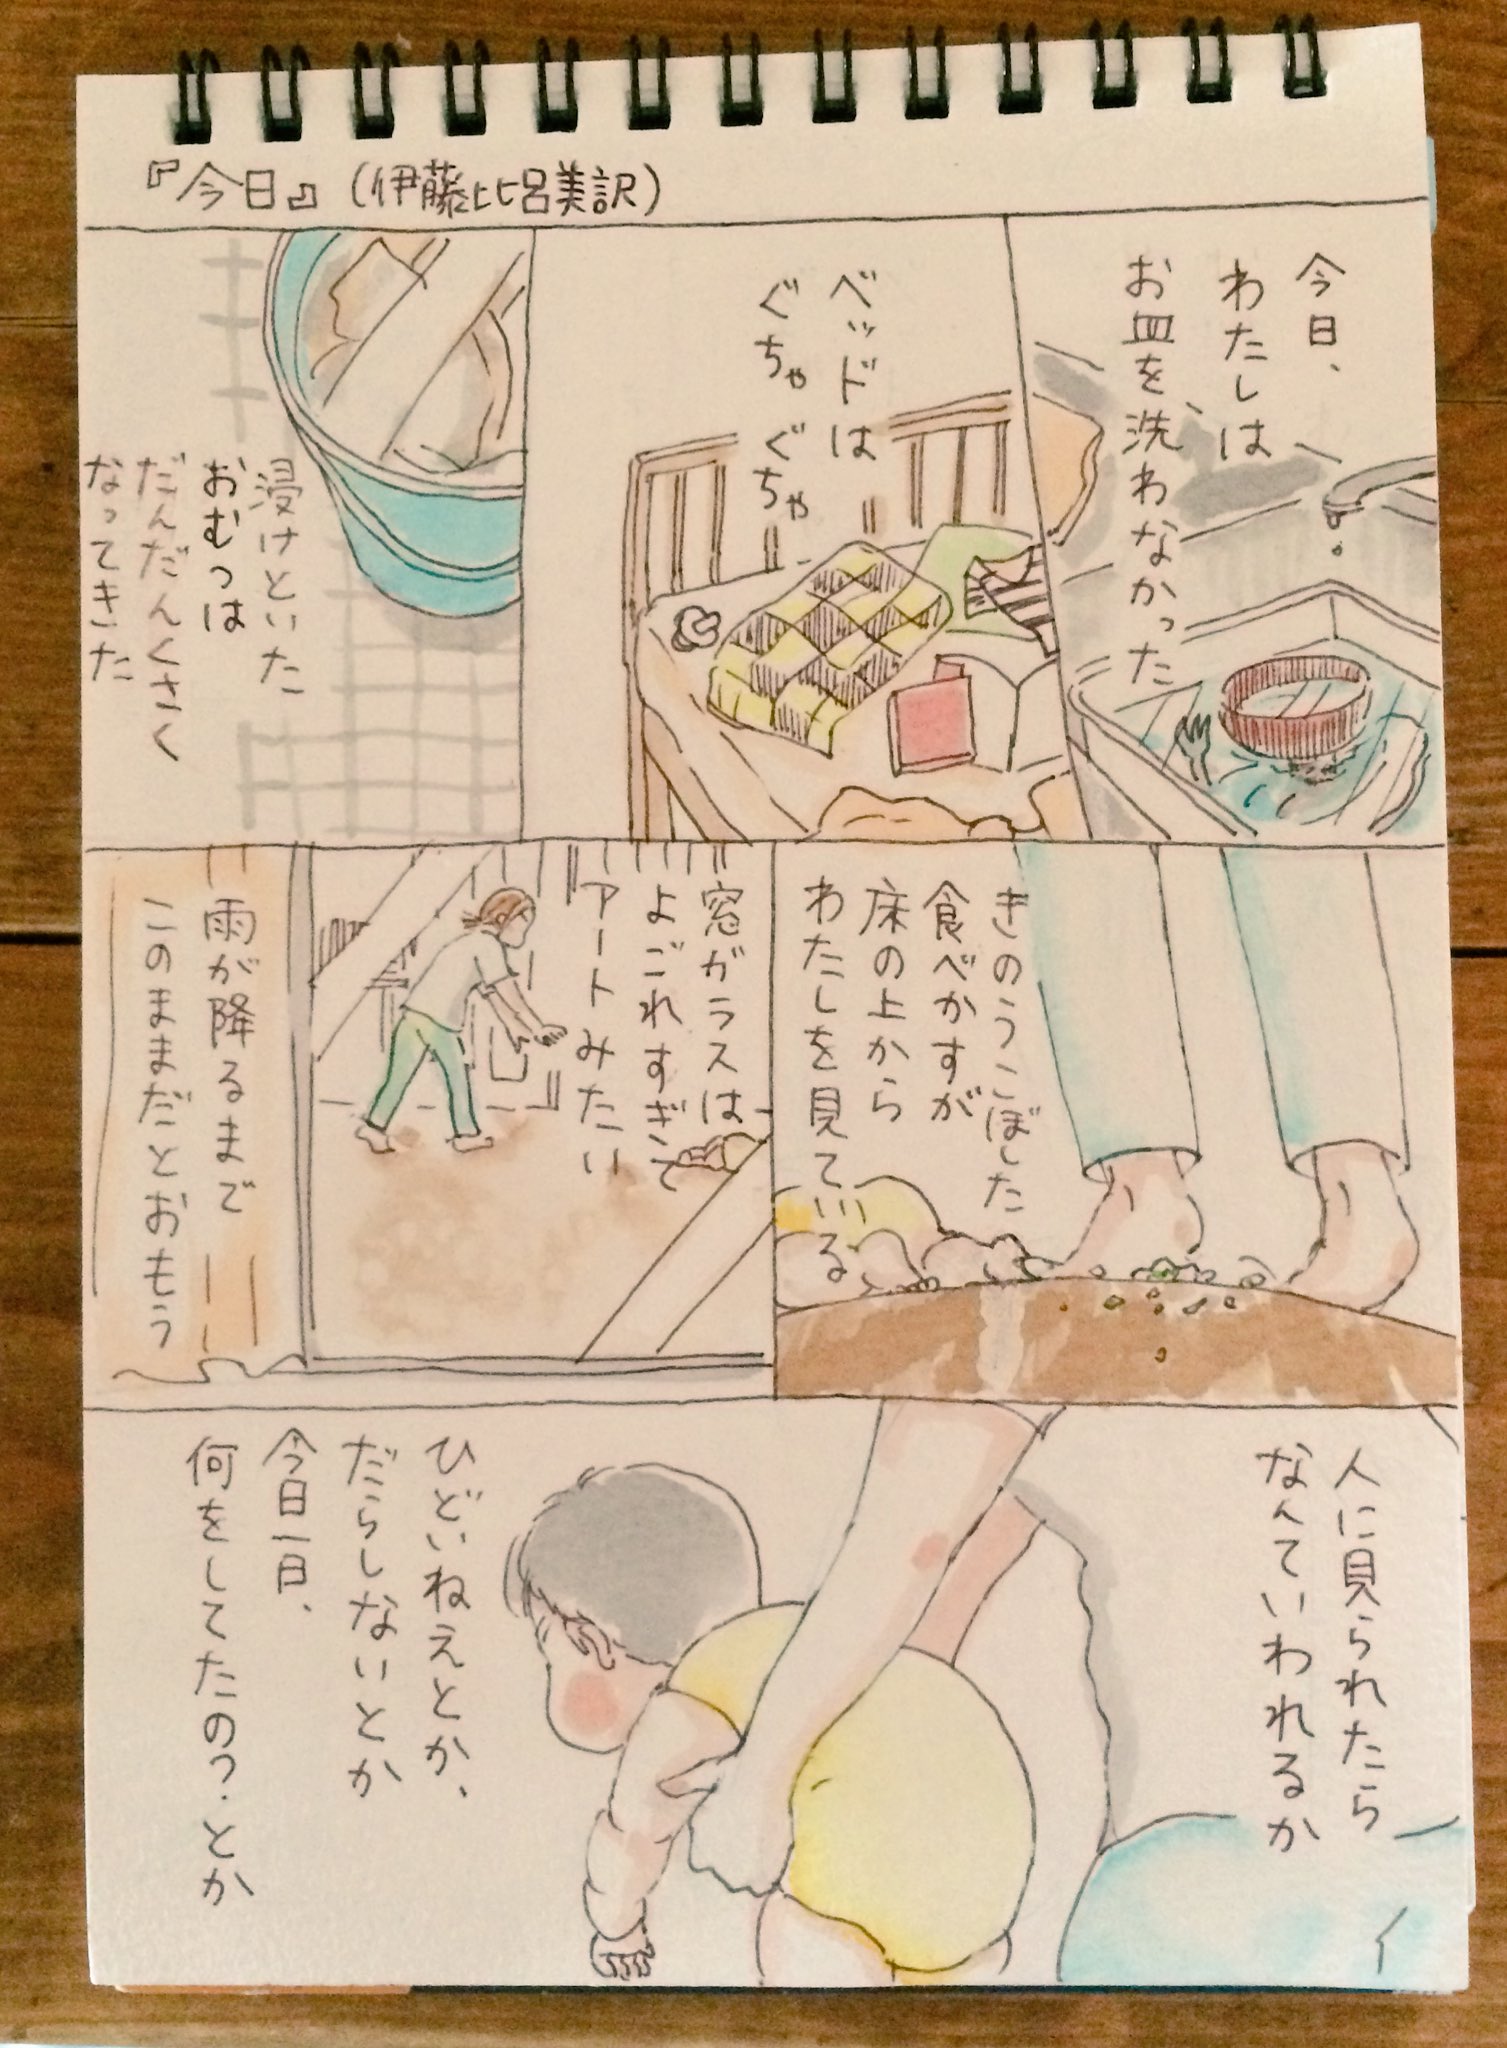 『今日』(伊藤比呂美訳)
今日、
わたしは
お皿を洗わなかった
ベッドは
ぐちゃぐちゃ
浸けといた
おむつは
だんだんくさく
なってきた
きのうこぼした
食べかすが
床の上から
わたしを見ている
窓ガラスは
よごれすぎて
アートみたい
雨が降るまで
このままだとおもう
人に見られたら
なんていわれるか
ひどいねえとか、
だらしないとか
今日一日、
何をしてたの?とか